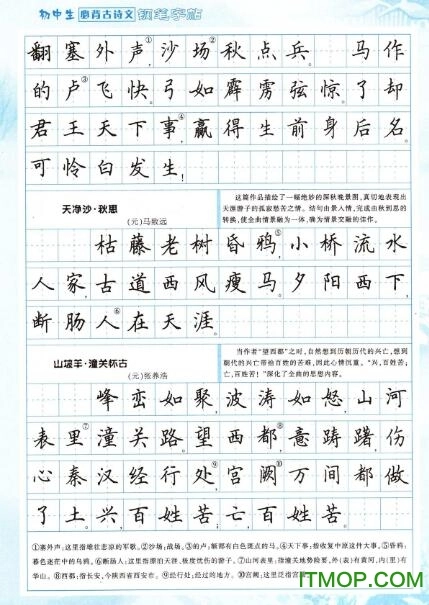 初中生 必背古诗文 钢笔字帖
翻塞外声①,沙场②秋点兵。 马作
的卢③飞快,弓如霹雳弦惊。了却
君王天下事④,赢得生前身后名。
可怜白发生!
天净沙·秋思
(元)马致远
这篇作品描绘了一幅绝妙的深秋晚景图,真切地表现出
天涯游子的孤寂愁苦之情。结句由景入情,完成由秋到思的
转换,使全曲情景融为一体,确为情景交融的佳作。
枯藤老树昏鸦⑤,小桥流水
人家,古道西风瘦马。夕阳西下,
断肠人⑥在天涯。
山坡羊·潼关怀古
(元)张养浩
当作者“望西都”之时,自然想到历朝历代的兴亡,想到
朝代的兴亡带给百姓的苦难,因此心情沉重。“兴,百姓苦;
亡,百姓苦!”深化了全曲的思想内容。
峰峦如聚,波涛如怒,山河
表里⑦潼关路。望西都⑧,意踌躇,伤
心秦汉经行处⑨,宫阙⑩万间都做
了土。兴,百姓苦;亡,百姓苦!
①塞外声:这里指雄壮悲凉的军歌。②沙场:战场。③的卢:额部有白色斑点的马。④天下事:指收复中原这件大事。⑤昏鸦:
暮色迷茫中的乌鸦。⑥断肠人:这里指漂泊天涯、极度忧伤的游子。⑦山河表里:指潼关地势险要,外(表)有黄河,内(里)有
华山。⑧西都:指长安,今陕西省西安市。⑨经行处:经过的地方。⑩宫阙:这里泛指宫
ITMOP.COM